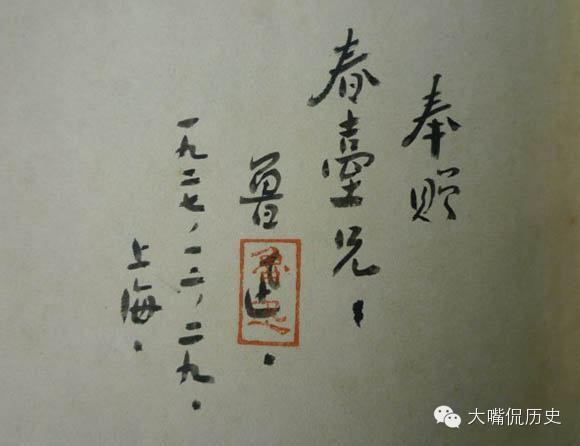 奉赠
春臺兄.
魯迅.
一九二七,一二,二九.
上海.
魯迅
大嘴侃历史